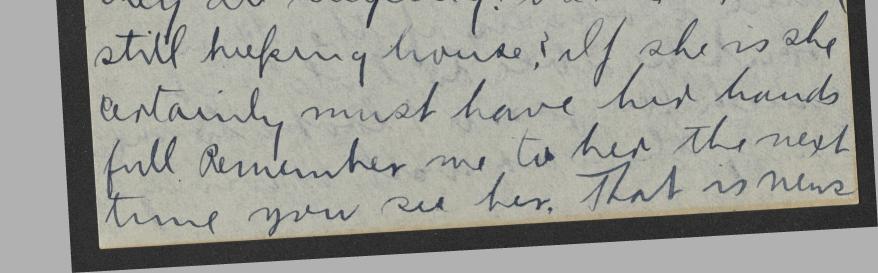 still keeping house? If she is she
certainly must have her hands
full Remember me to her the next
time you see her. That is news